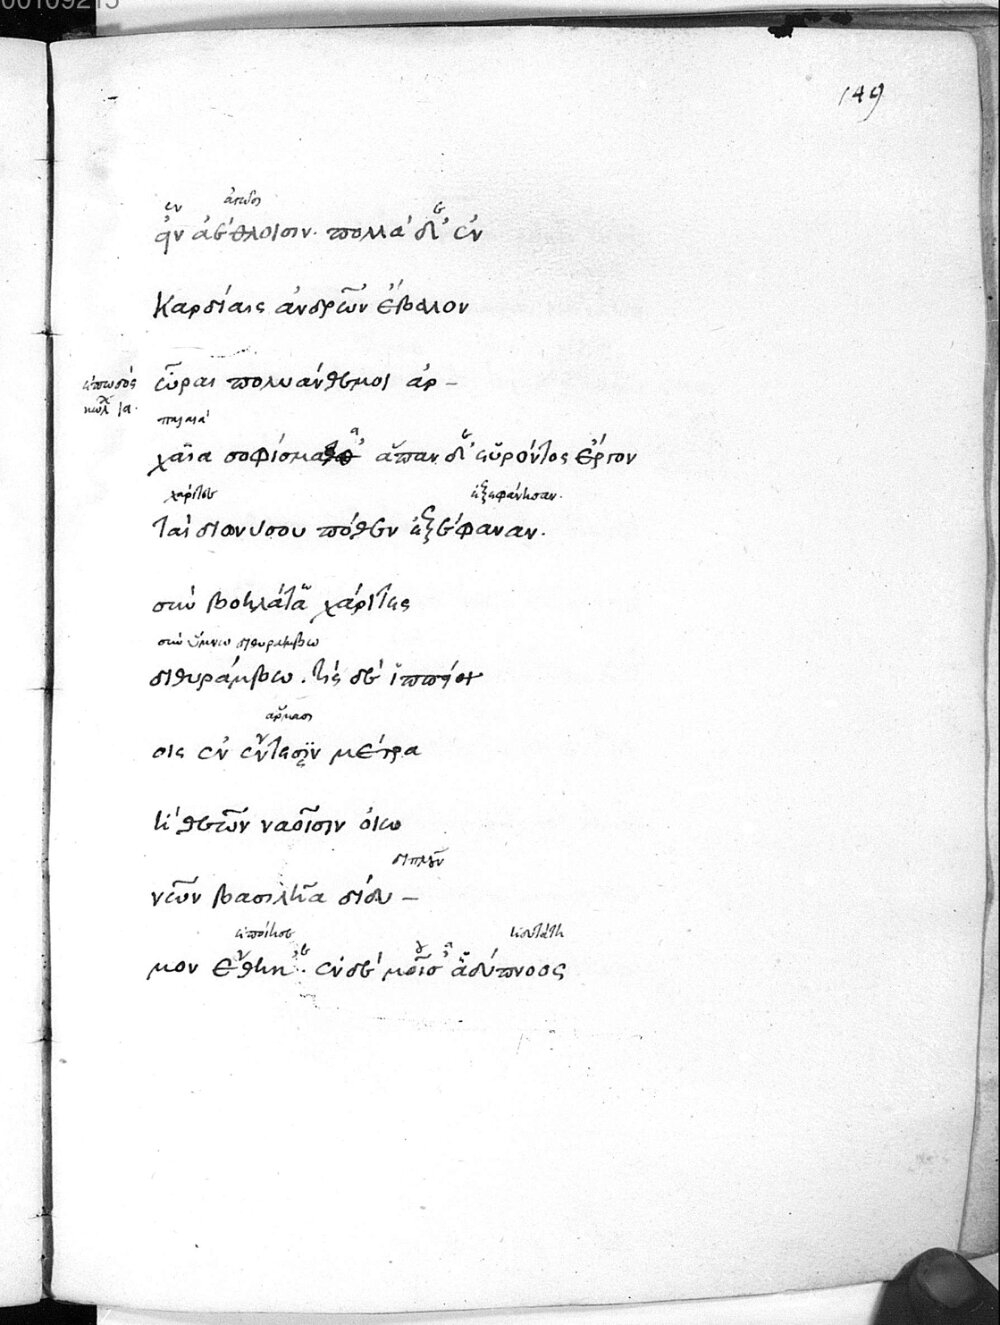 00109215
149
ἐν ἀγῶσι
ἐν ἀέθλοισιν. πολλὰ δ' ἐν
καρδίαις ἀνδρῶν ἔβαλον
ἐπῳδὸς
κώλ ια.
ὧραι πολυάνθεμοι ἀρ-
παλαιὰ
χαῖα σοφίσμαθ' ἅπαν δ' εὑρόντος ἔργον
χάριτες ἐξεφάνησαν.
ταὶ διωνύσου πόθεν ἐξέφαναν.
σὺν βοηλάτα χάριτες
σὺν ὕμνω διθυράμβω
διθυράμβω. τίς δὲ ἱππείοι
ἅρμασι
σις ἐν ἔντεσϊν μέτρα
τί θεῶν ναοῖσιν οἰω
διπλοῦν
νῶν βασιλῆα δίδυ-
ἐποίησε
μον ἔθηκ'. ἐν δὲ μοῖσ' ἁδύπνοος